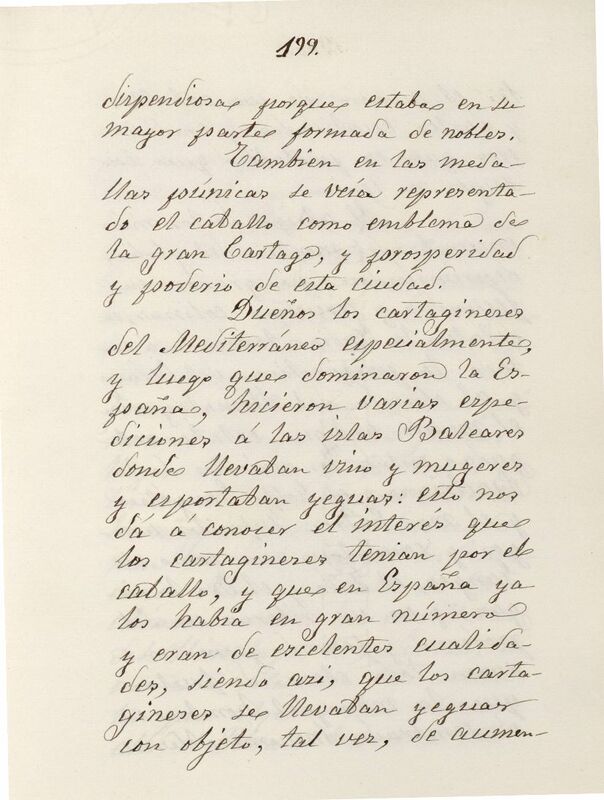 199.
dispendiosa porque estaba en su
mayor parte formada de nobles.
Tambien en las meda-
llas púnicas se veía representa-
do el caballo como emblema de
la gran Cartago, y prosperidad
y poderio de esta ciudad.
Dueños los cartagineses
del Mediterráneo especialmente,
y luego que dominaron la Es-
paña, hicieron varias espe-
diciones á las islas Baleares
donde llevaban vino y mugeres
y esportaban yeguas: esto nos
dá á conocer el interés que
los cartagineses tenian por el
caballo, y que en España ya
los habia en gran número
y eran de escelentes cualida-
des, siendo asi, que los carta-
gineses se llevaban yeguas
con objeto, tal vez, de aumen-